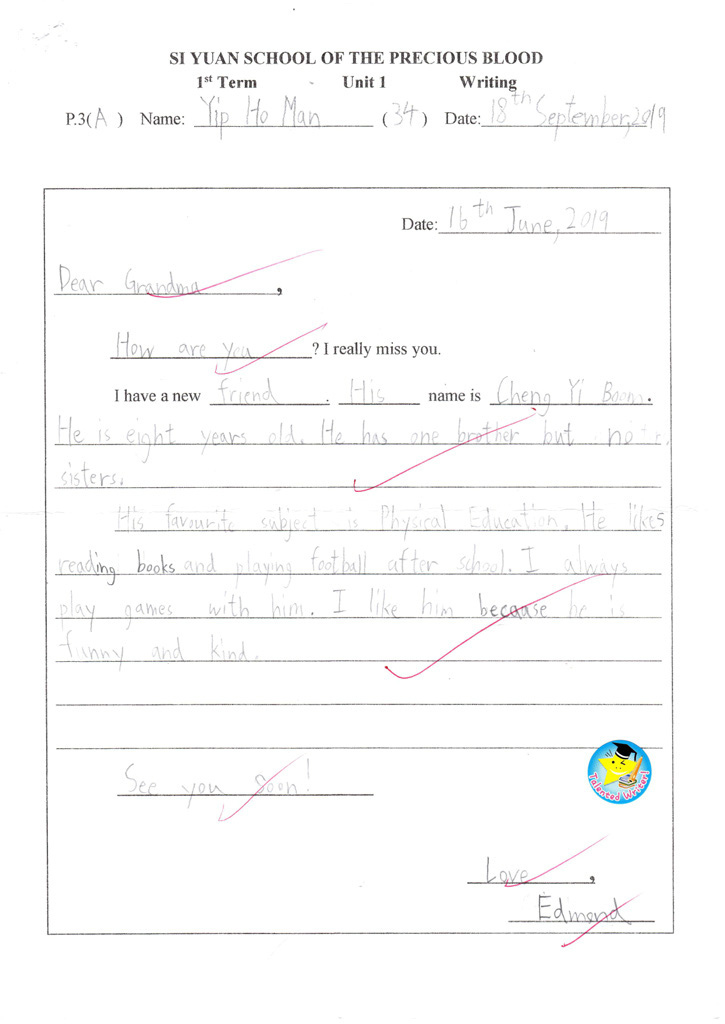 SI YUAN SCHOOL OF THE PRECIOUS BLOOD
1st Term - Unit 1 Writing
P.3( A ) Name: Yip Ho Man ( 34 ) Date: 18th September, 2019
Date: 16th June, 2019
Dear Grandma ,
How are you ? I really miss you.
I have a new friend . His name is Cheng Yi Boom .
He is eight years old. He has one brother but no
sisters.
His favourite subject is Physical Education. He likes
reading books and playing football after school. I always
play games with him. I like him because he is
funny and kind.
See you soon!
Talented Writer!
Love ,
Edmond